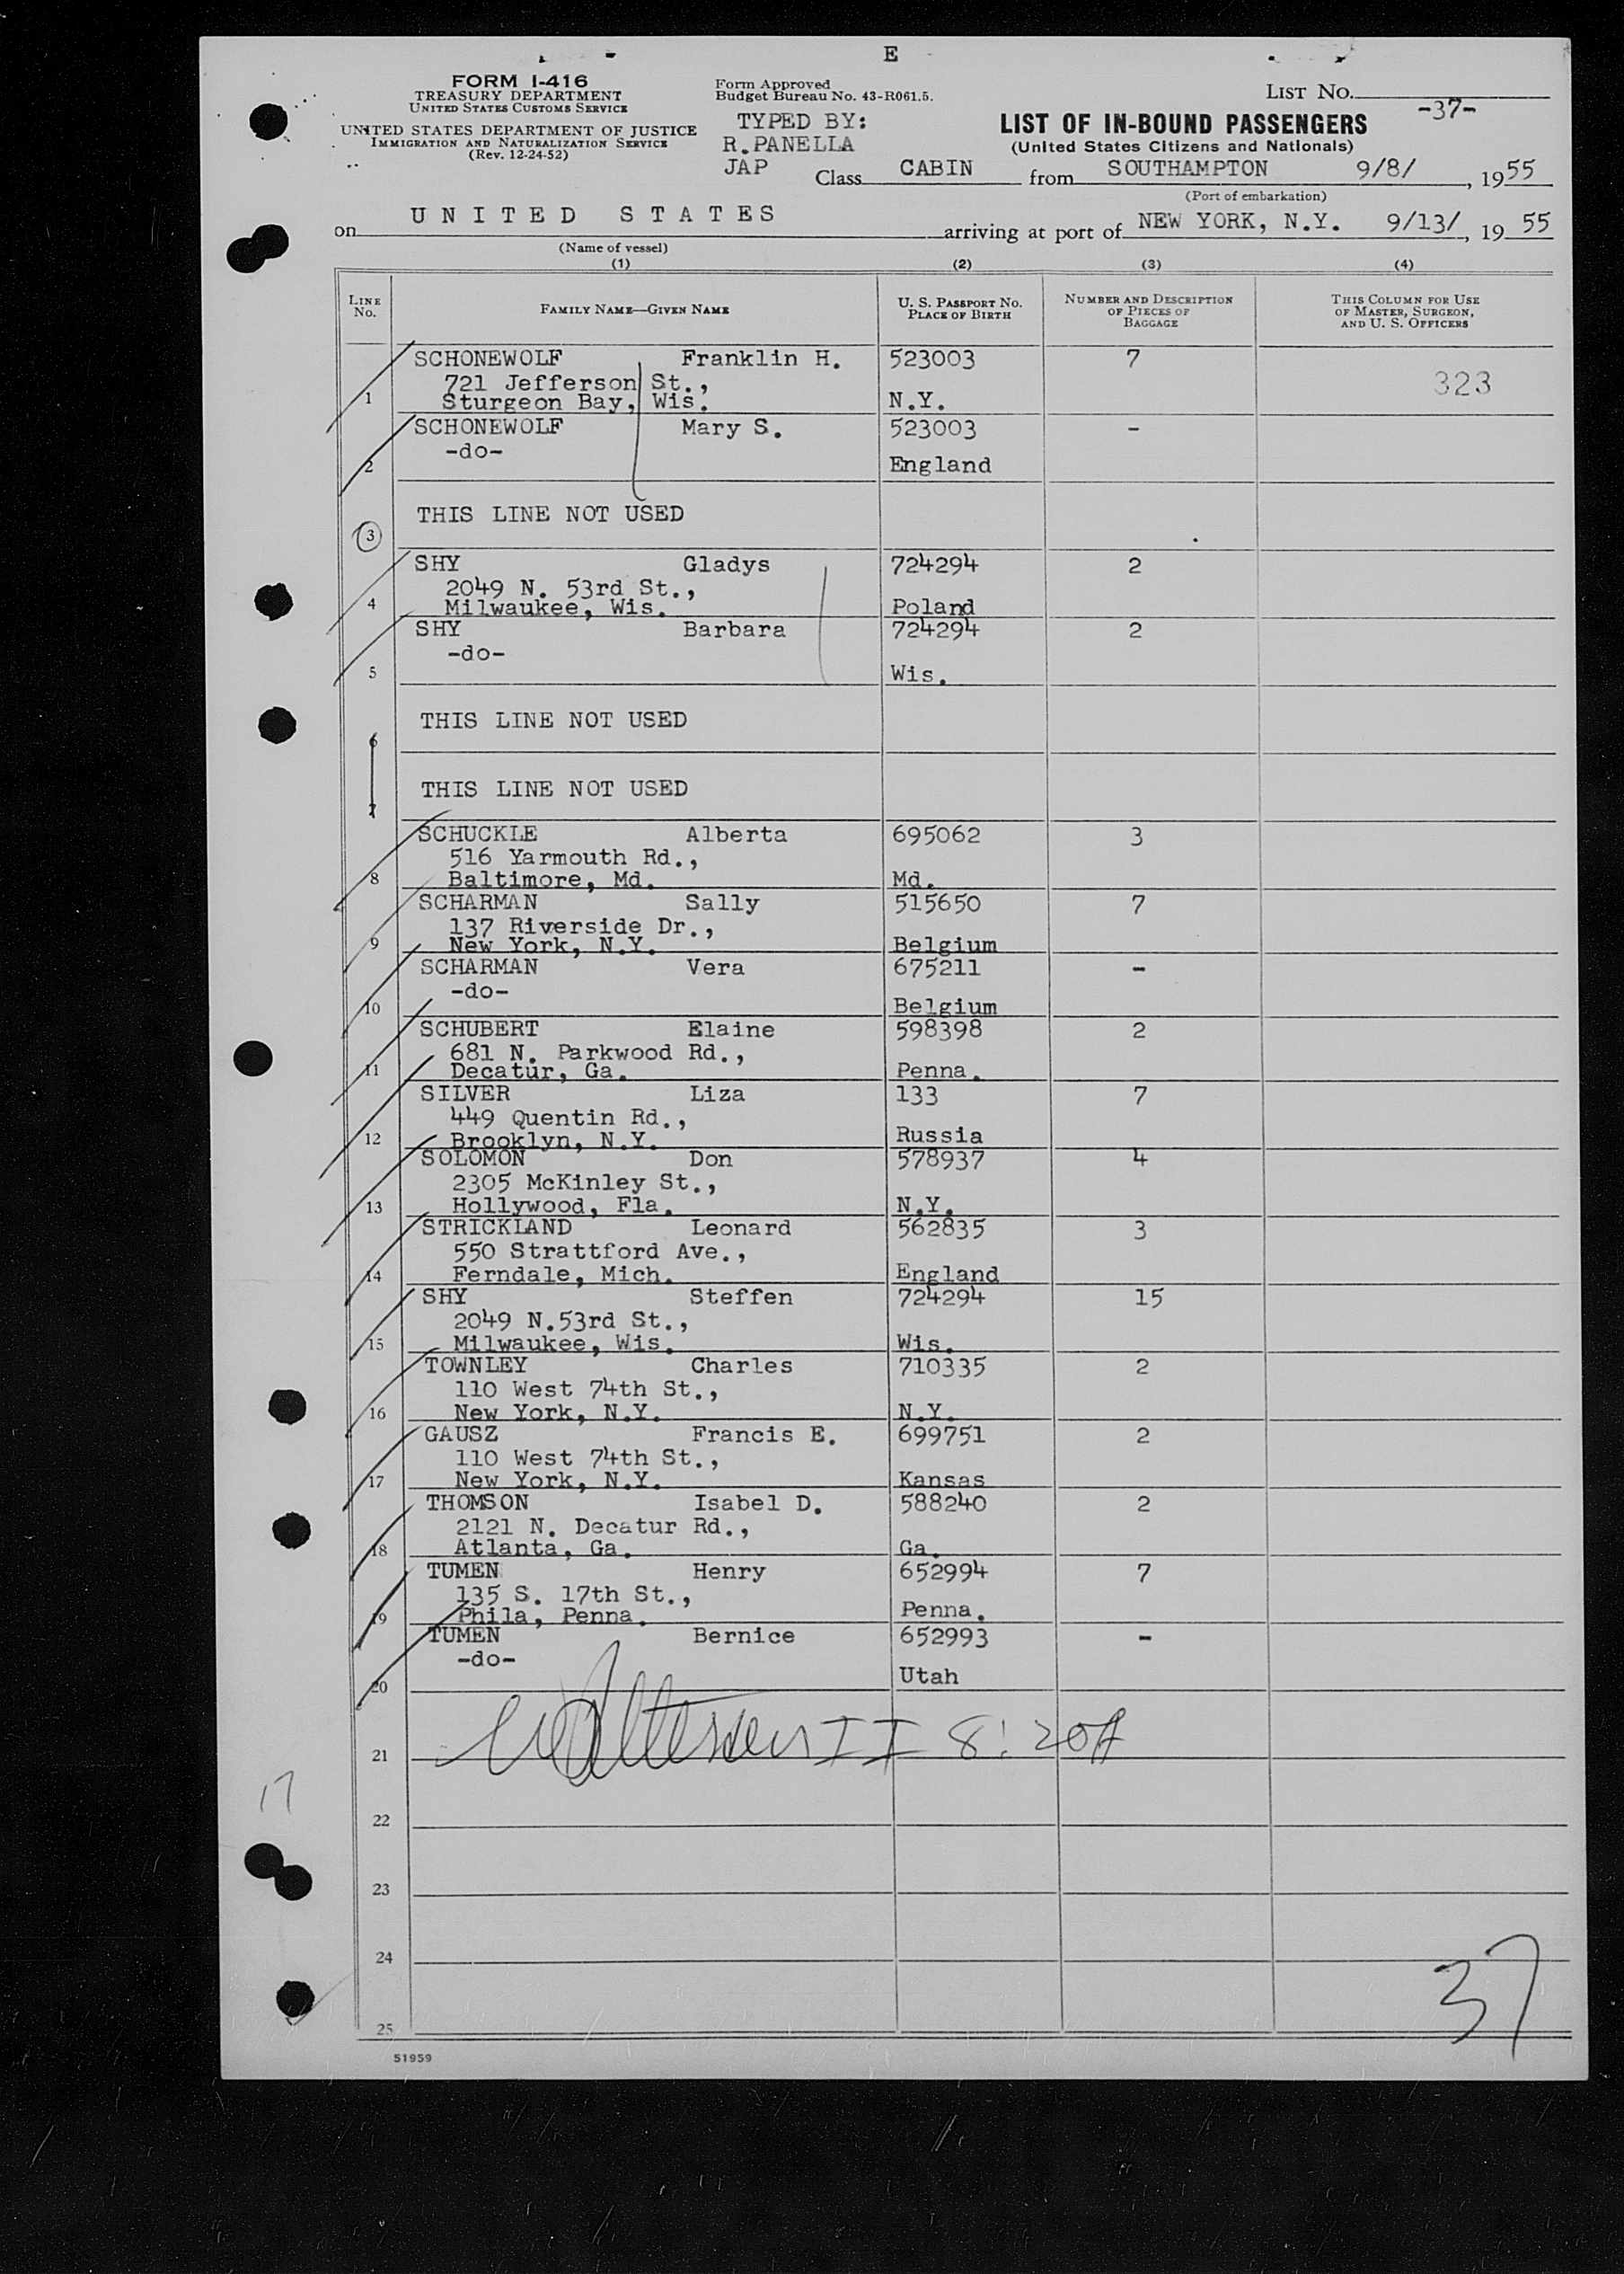 E
FORM I-416
TREASURY DEPARTMENT
UNITED STATES CUSTOMS SERVICE
UNITED STATES DEPARTMENT OF JUSTICE
IMMIGRATION AND NATURALIZATION SERVICE
(Rev. 12-24-52)
Form Approved
Budget Bureau No. 43-R061.5.
TYPED BY:
R.PANELLA
JAP
LIST NO. -37-
LIST OF IN-BOUND PASSENGERS
(United States Citizens and Nationals)
Class CABIN from SOUTHAMPTON 9/8/, 1955
(Port of embarkation)
on UNITED STATES arriving at port of NEW YORK, N.Y. 9/13/, 19 55
(Name of vessel)
(1) (2) (3) (4)
LINE No. FAMILY NAME—GIVEN NAME U. S. PASSPORT NO. PLACE OF BIRTH NUMBER AND DESCRIPTION OF PIECES OF BAGGAGE THIS COLUMN FOR USE OF MASTER, SURGEON, AND U. S. OFFICERS
SCHONEWOLF Franklin H. 523003 7
721 Jefferson St., 323
1 Sturgeon Bay, Wis. N.Y.
SCHONEWOLF Mary S. 523003 -
-do-
2 England
THIS LINE NOT USED
3
SHY Gladys 724294 2
2049 N. 53rd St.,
4 Milwaukee, Wis. Poland
SHY Barbara 724294 2
-do-
5 Wis.
THIS LINE NOT USED
6
THIS LINE NOT USED
7
SCHUCKLE Alberta 695062 3
516 Yarmouth Rd.,
8 Baltimore, Md. Md.
SCHARMAN Sally 515650 7
137 Riverside Dr.,
9 New York, N.Y. Belgium
SCHARMAN Vera 675211 -
-do-
10 Belgium
SCHUBERT Elaine 598398 2
681 N. Parkwood Rd.,
11 Decatur, Ga. Penna.
SILVER Liza 133 7
449 Quentin Rd.,
12 Brooklyn, N.Y. Russia
SOLOMON Don 578937 4
2305 McKinley St.,
13 Hollywood, Fla. N.Y.
STRICKLAND Leonard 562835 3
550 Strattford Ave.,
14 Ferndale, Mich. England
SHY Steffen 724294 15
2049 N.53rd St.,
15 Milwaukee, Wis. Wis.
TOWNLEY Charles 710335 2
110 West 74th St.,
16 New York, N.Y. N.Y.
GAUSZ Francis E. 699751 2
110 West 74th St.,
17 New York, N.Y. Kansas
THOMSON Isabel D. 588240 2
2121 N. Decatur Rd.,
18 Atlanta, Ga. Ga.
TUMEN Henry 652994 7
135 S. 17th St.,
19 Phila, Penna. Penna.
TUMEN Bernice 652993 -
-do-
20 Utah
II 8:20A
21
17
22
23
24
37
25
51959